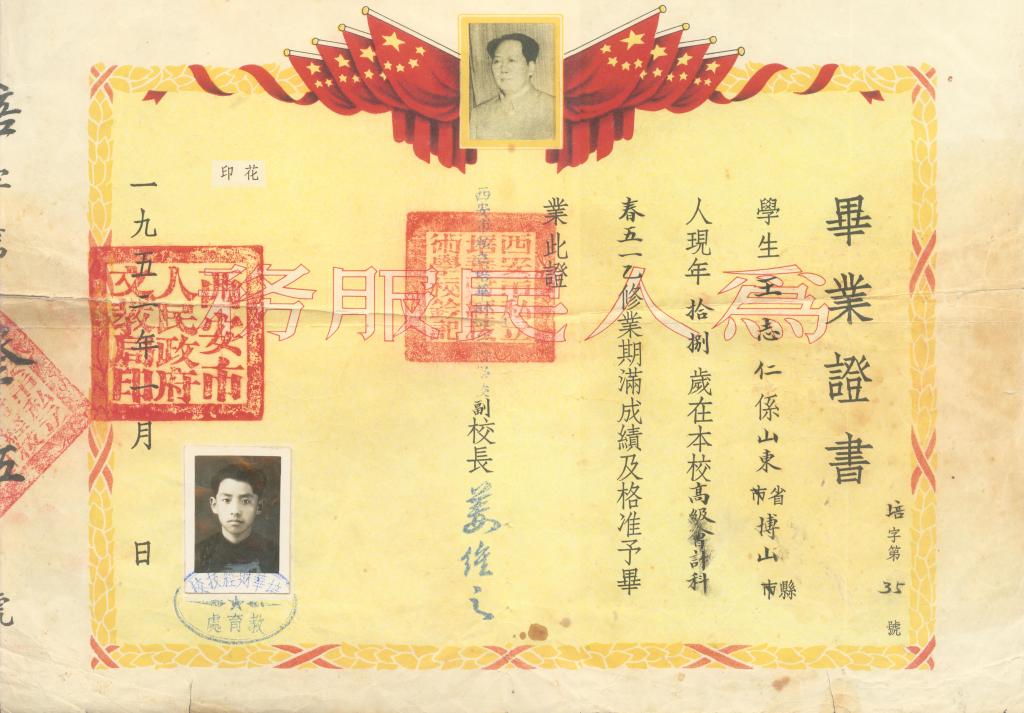 畢業證書
培字第35號
學生王志仁係山東省市博山縣市
人現年拾捌歲在本校高級會計科
春五一乙修業期滿成績及格准予畢
業此證
副校長
一九五二年一月 日
印花
為人民服務
西安市人民政府文教局印
培華財經技校
教育處